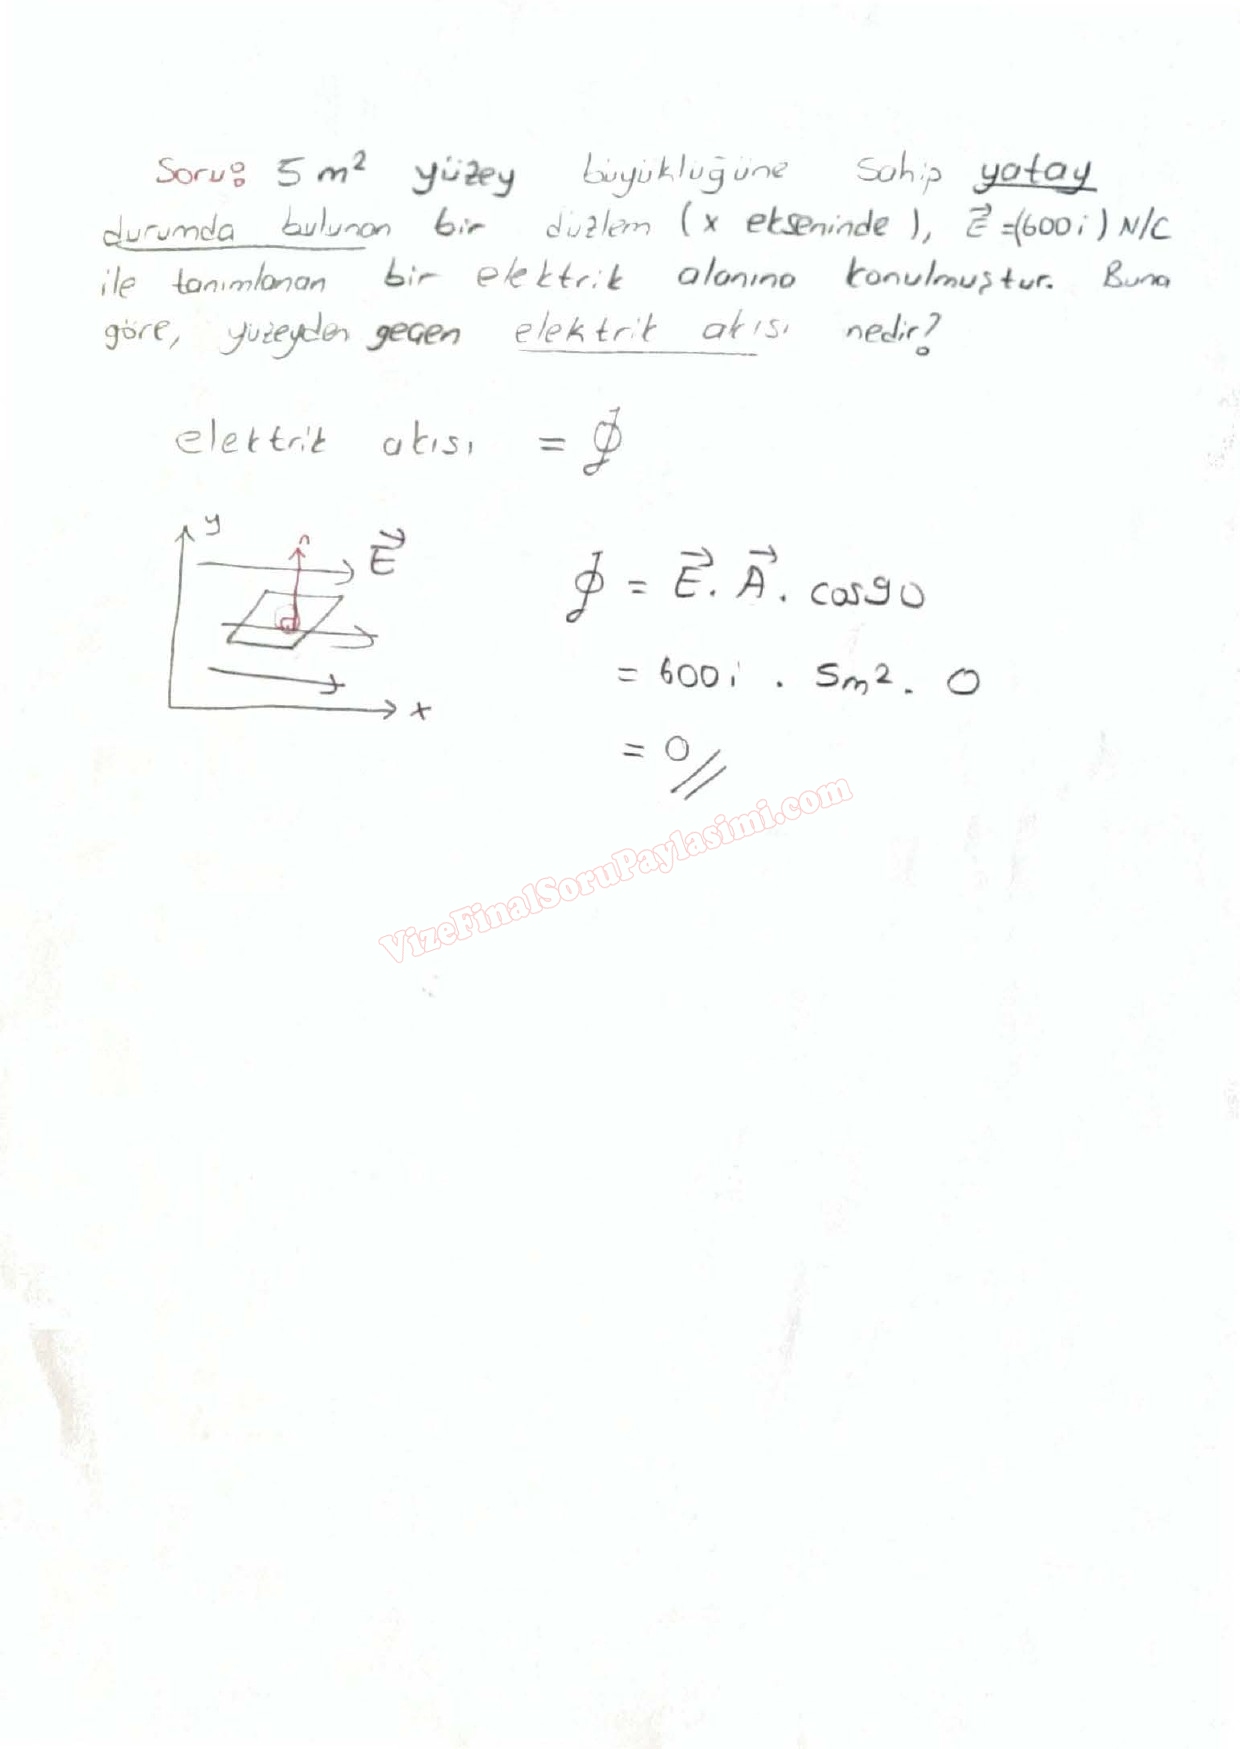 Soru: 5 m² yüzey büyüklüğüne sahip yatay
durumda bulunan bir düzlem (x ekseninde), E⃗=(600i) N/C
ile tanımlanan bir elektrik alanına konulmuştur. Buna
göre, yüzeyden geçen elektrik akısı nedir?
elektrik akısı = ϕ
y
n
E⃗
x
ϕ = E⃗. A⃗. cos90
= 600i . 5m². 0
= 0//
VizeFinalSoruPaylasimi.com